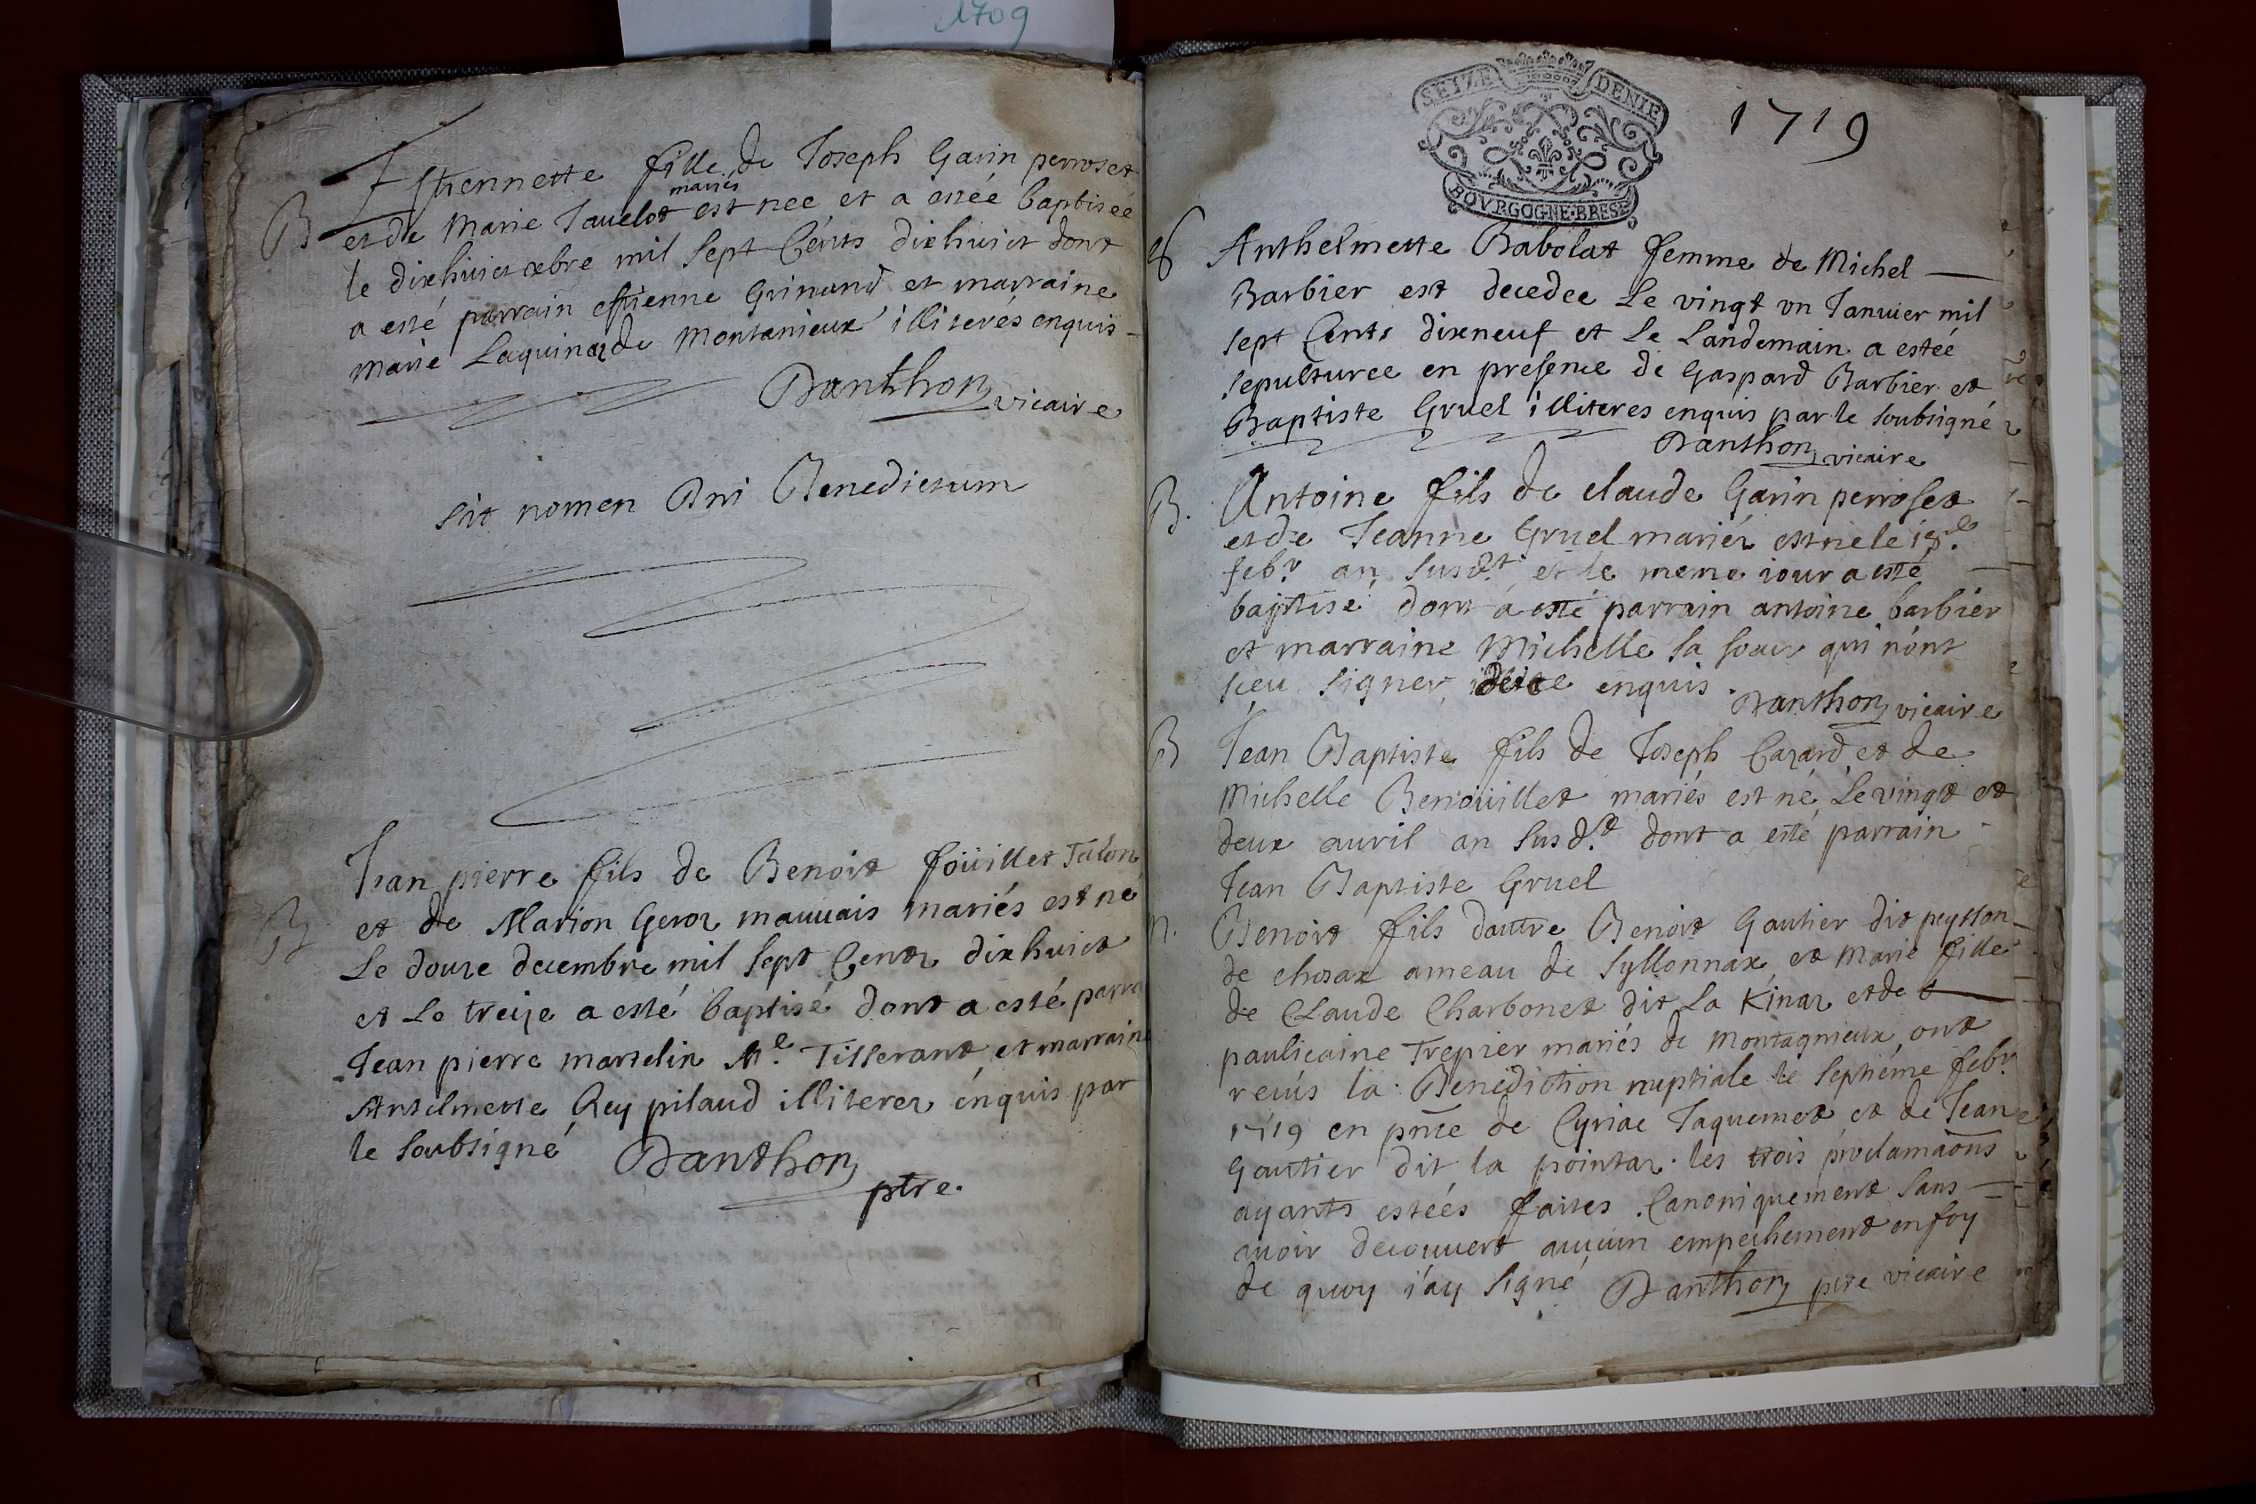 1709
B Estiennette fille de Joseph Garin perroset
et de Marie Jauelot mariés est nee et a estée baptisée
le dixhuict xbre mil sept Cents dixhuict dont
a esté parrain estienne Grinand et marraine
marie Laquinarde Montanieux illiterés enquis
Danthon vicaire
sit nomen Dni Benedictum
Jean pierre fils de Benoit foüillet Talon
B et de Marion Geroz mauuais mariés est né
Le douze decembre mil sept Centz dixhuict
et Le treize a esté baptisé dont a esté parra
Jean pierre martelin Me. Tisserant et marraine
Antelmette Rey pilaud illiterez enquis par
le soubsigné Danthon
ptre.
SEIZE DENIE
BOVRGOGNE·BRESE
1719
Anthelmette Babolat femme de Michel
Barbier est decedee Le vingt vn Januier mil
sept Cents dixneuf et Le Landemain a estée
sepulturee en presence de Gaspard Barbier et
Baptiste Gruel illiteres enquis par le soubsigné
Danthon vicaire
B. Antoine fils de claude Garin perroset
et de Jeanne Gruel mariéz est né le 18e
febr. an susdt. et le meme iour a esté
baptisé dont a esté parrain antoine barbier
et marraine Michelle sa soeur qui n'ont
sceu signer de ce enquis. Danthon vicaire
B Jean Baptiste fils de Joseph Cazard et de
Michelle Benoüillet mariés est né Le vingt et
deux auril an susdt. dont a esté parrain
Jean Baptiste Gruel
n. Benoit fils dautre Benoit Gautier dit peysson
de chosax ameau de Syllonnax et Marie fille
de CLaude Charbonet dit La Kinaz et de
paulicaine Trepier mariés de Montagnieux, ont
receüs la Benediction nuptiale le septiéme febr.
1719 en pnce de Cyriac Jaquemet et de Jean
Gautier dit la pointaz. les trois proclamaons
ayants estéés faites Canoniquement sans
auoir decouuert aucun empechement en foy
de quoy i'ay signé Danthon ptre vicaire